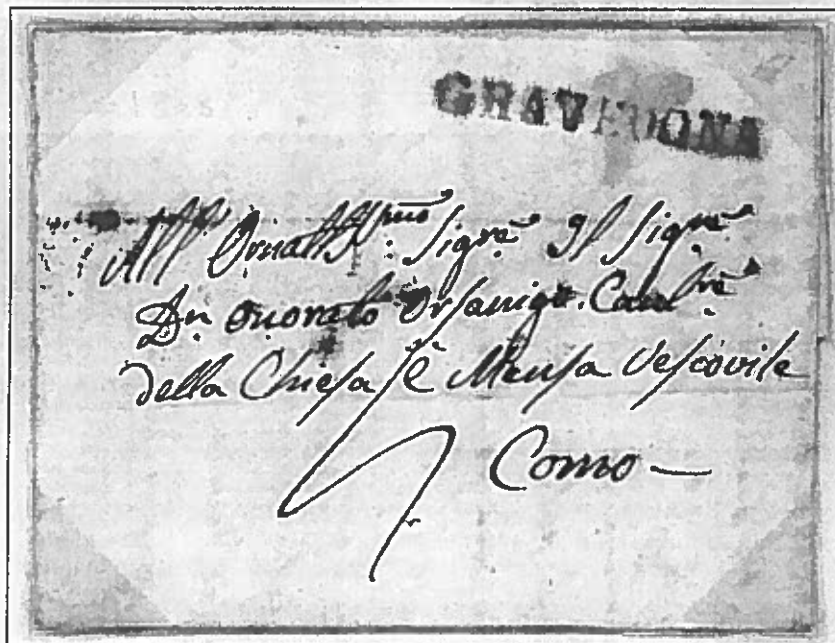 GRAVEDONA
All' Ornatiss.mo Sigre Il Sigre
Dn Onorato Orsanigo
della Chiesa è Mensa Vescovile
Como